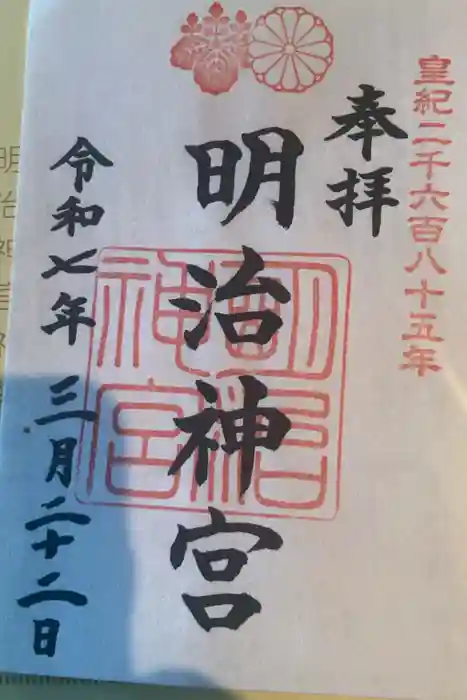 皇紀二千六百八十五年
奉拝
明治神宮
令和七年 三月二十二日
明治神宮